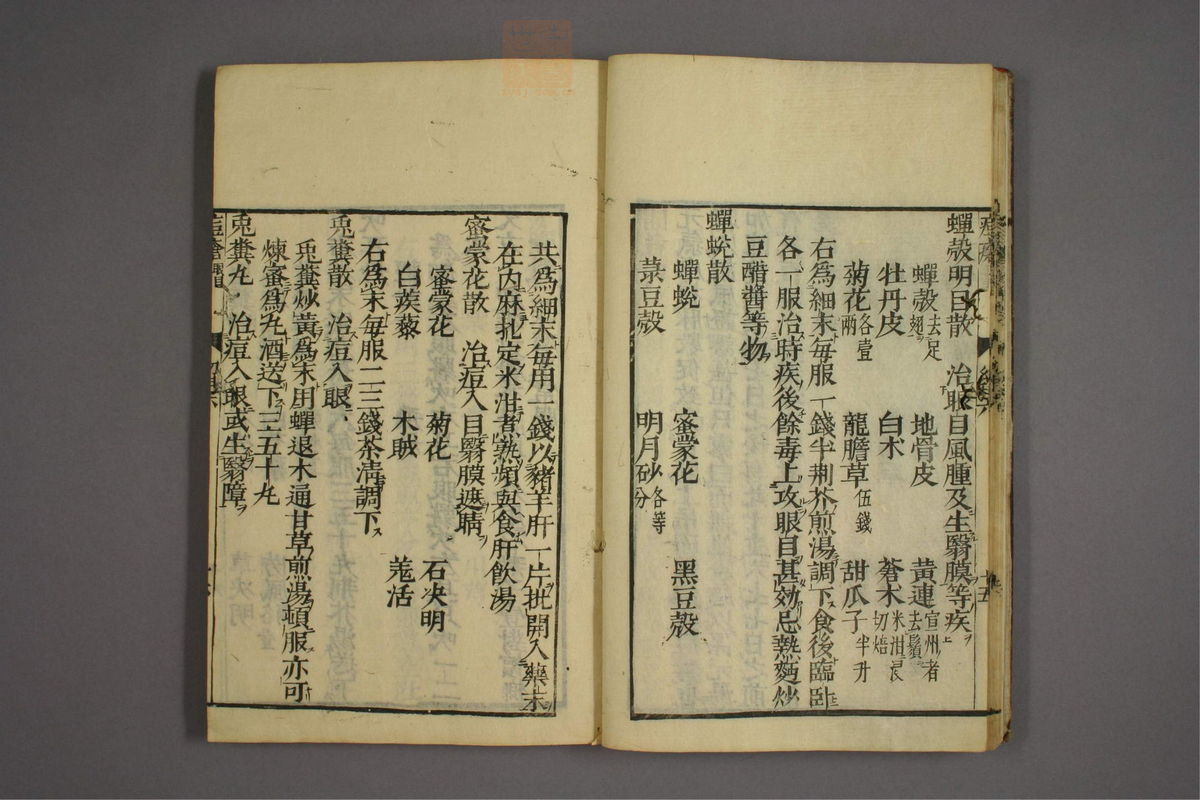 蟬殼明目散 治眼目風腫及生翳膜等疾
蟬殼去足翅 地骨皮 黃連宣州者去鬚
牡丹皮 白朮 蒼朮米泔浸切焙
菊花各壹兩 龍膽草伍錢 甜瓜子半升
右爲細末每服一錢半荆芥煎湯調下食後臨臥
各一服治時疾後餘毒上攻眼目甚効忌熱麪炒
豆醋醬等物
蟬蛻散
蟬蛻 蜜蒙花 黑豆殼
菉豆殼 明月砂各等分
共爲細末每用一錢以豬羊肝一片批開入藥末
在内麻扎定米泔煮熟頻與食肝飲湯
蜜蒙花散 治痘入目翳膜遮睛
蜜蒙花 菊花 石決明
白蒺藜 木賊 羗活
右爲末每服二三錢茶淸調下
兎糞散 治痘入眼
兎糞炒黃爲末用蟬退木通甘草煎湯頓服亦可
煉蜜爲丸酒送下三五十丸
兎糞丸 治痘入眼或生翳障